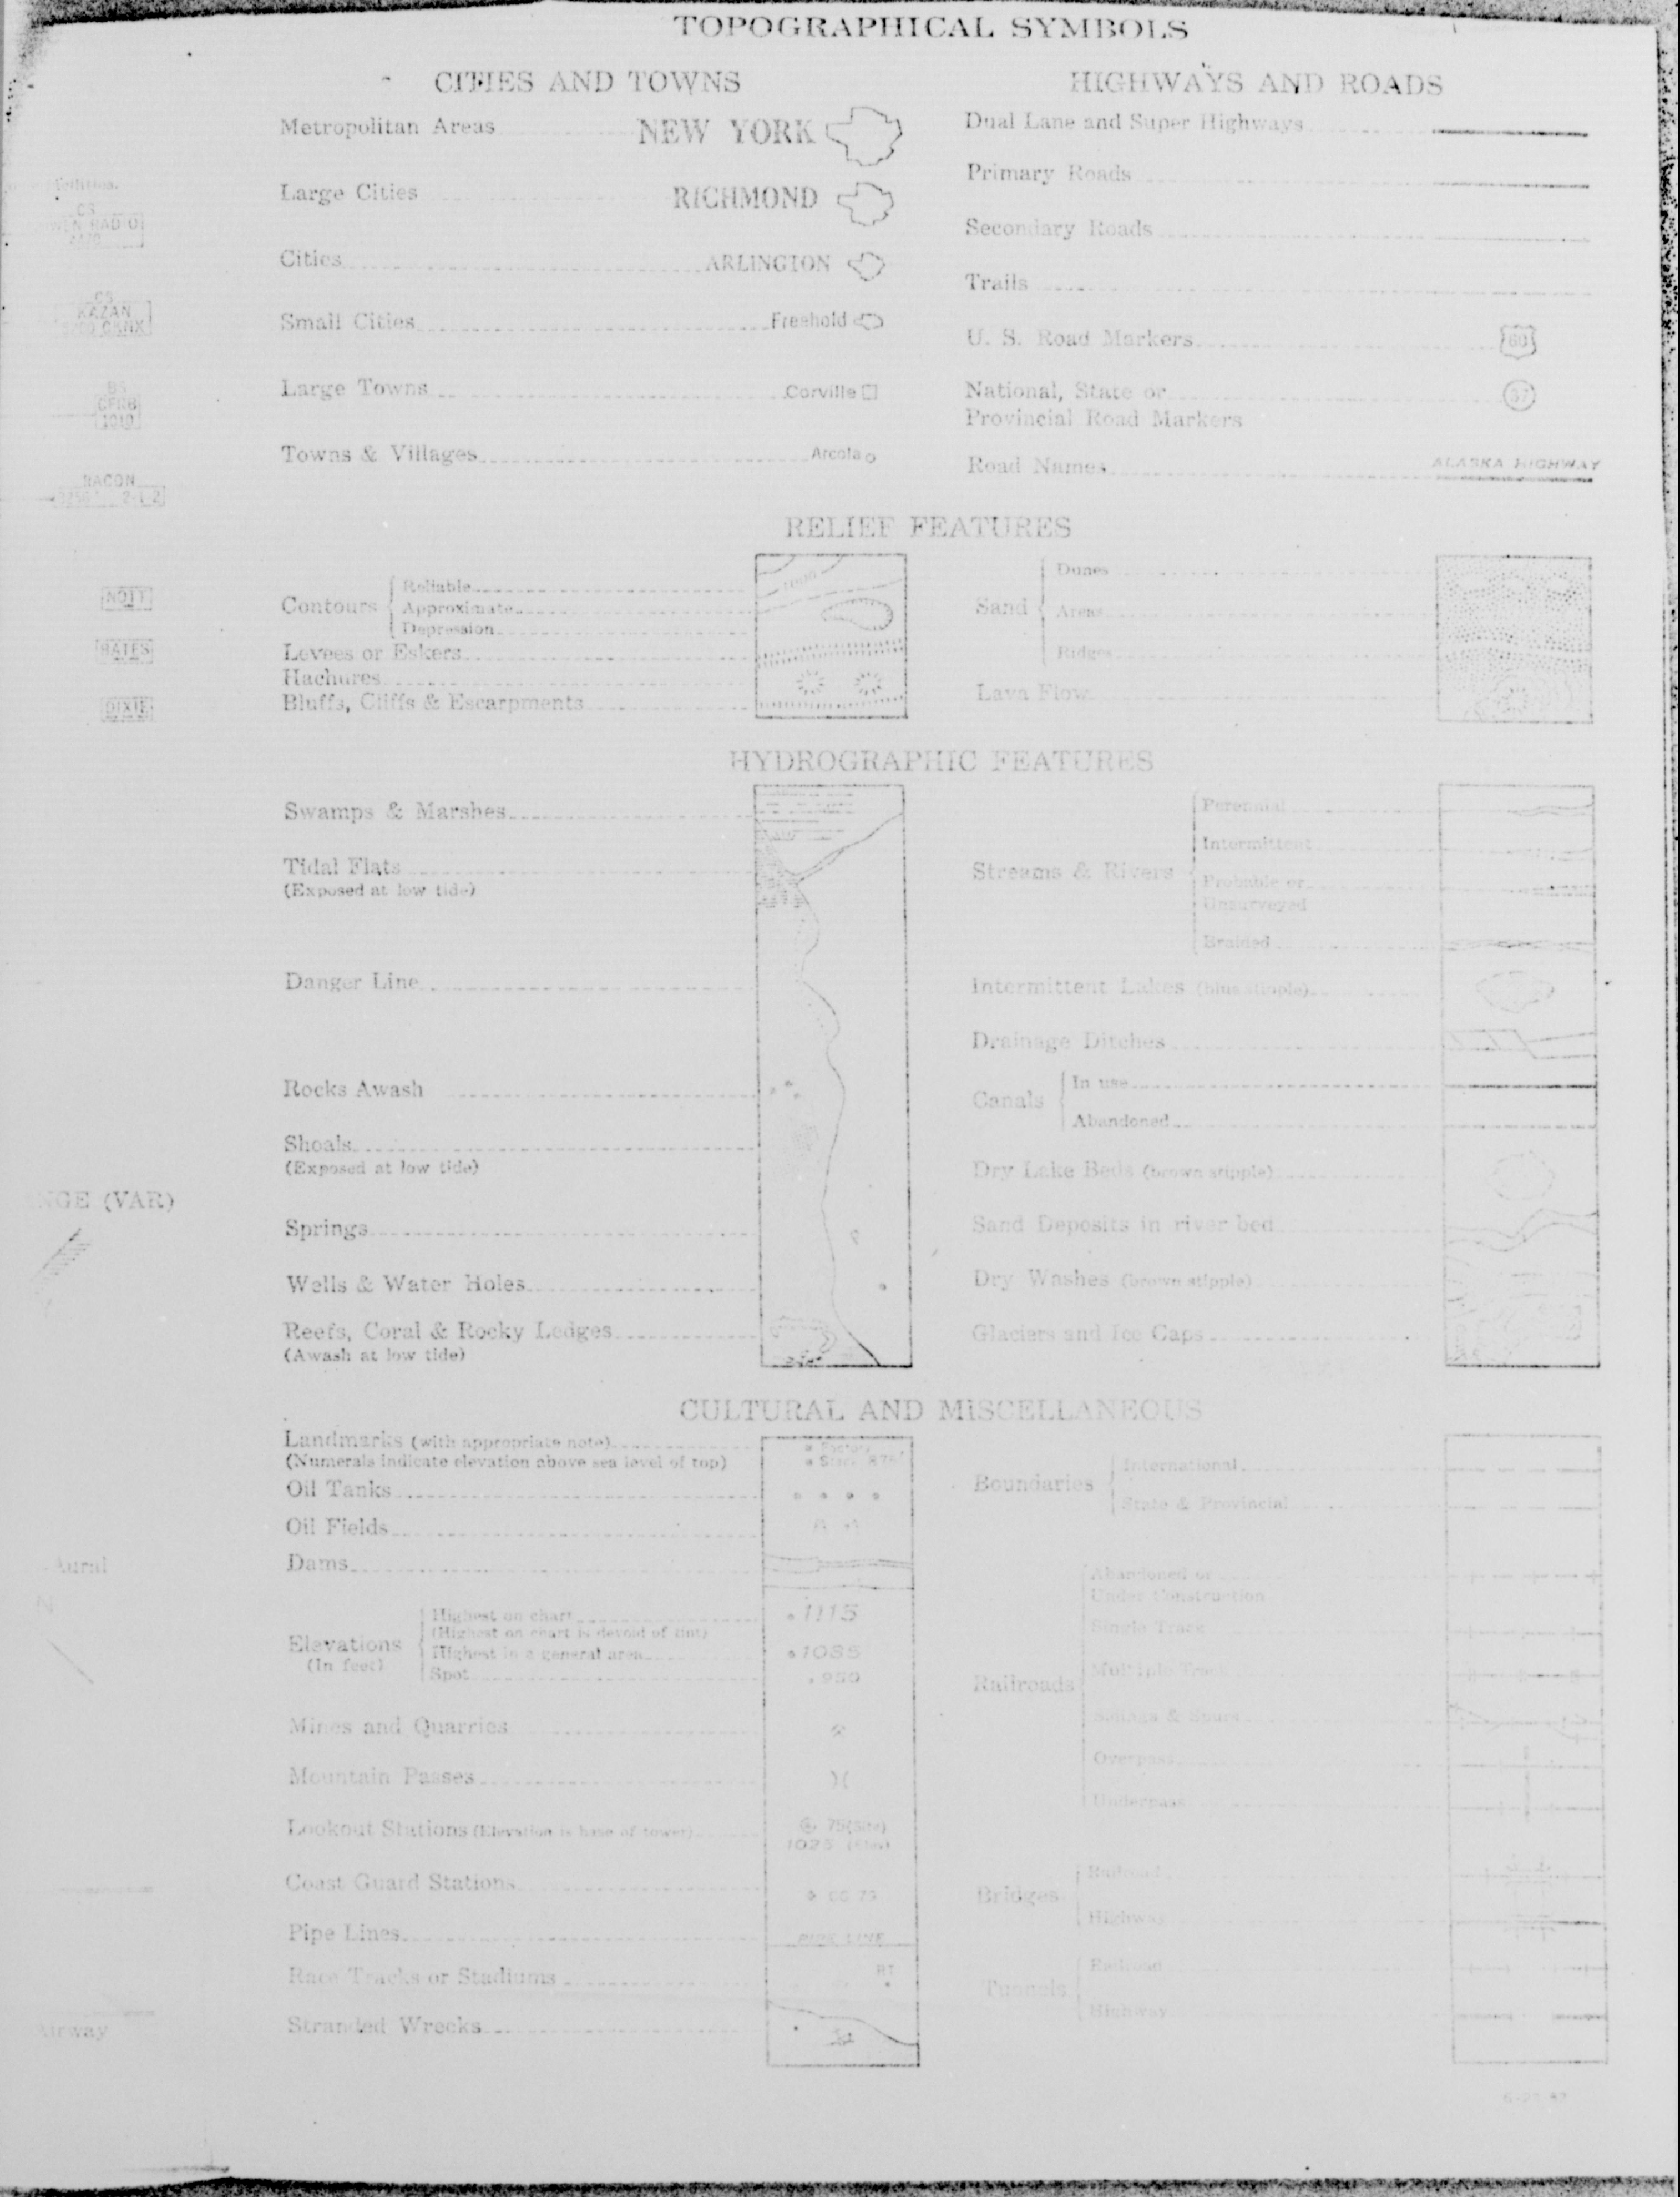 TOPOGRAPHICAL SYMBOLS
CITIES AND TOWNS
Metropolitan Areas NEW YORK
Large Cities RICHMOND
Cities ARLINGTON
Small Cities Freehold
Large Towns Corville
Towns & Villages Arcola
HIGHWAYS AND ROADS
Dual Lane and Super Highways
Primary Roads
Secondary Roads
Trails
U. S. Road Markers 60
National, State or
Provincial Road Markers 37
Road Names ALASKA HIGHWAY
RELIEF FEATURES
Contours
Reliable
Approximate
Depression
1000
Levees or Eskers
Hachures
Bluffs, Cliffs & Escarpments
Sand
Dunes
Areas
Ridges
Lava Flow
HYDROGRAPHIC FEATURES
Swamps & Marshes
Tidal Flats
(Exposed at low tide)
Danger Line
Rocks Awash
Shoals
(Exposed at low tide)
Springs
Wells & Water Holes
Reefs, Coral & Rocky Ledges
(Awash at low tide)
Streams & Rivers
Perennial
Intermittent
Probable or
Unsurveyed
Braided
Intermittent Lakes (blue stipple)
Drainage Ditches
Canals
In use
Abandoned
Dry Lake Beds (brown stipple)
Sand Deposits in river bed
Dry Washes (brown stipple)
Glaciers and Ice Caps
CULTURAL AND MISCELLANEOUS
Landmarks (with appropriate note) Factory
(Numerals indicate elevation above sea level of top)
Oil Tanks
Oil Fields
Dams
Elevations
(In feet)
Highest on chart 1115
(Highest on chart is devoid of tint)
Highest in a general area 1085
Spot 950
Mines and Quarries
Mountain Passes
Lookout Stations (Elevation is base of tower) 75 (Site)
1025 (Elev)
Coast Guard Stations
Pipe Lines PIPE LINE
Race Tracks or Stadiums RT
Stranded Wrecks
Boundaries
International
State & Provincial
Railroads
Abandoned or
Under Construction
Single Track
Multiple Track
Sidings & Spurs
Overpass
Underpass
Bridges
Railroad
Highway
Tunnels
Railroad
Highway
CS
CS
KAZAN
BS
CFRB
1010
RACON
NOTT
BATES
DIXIE
(VAR)
Aural
N
Airway